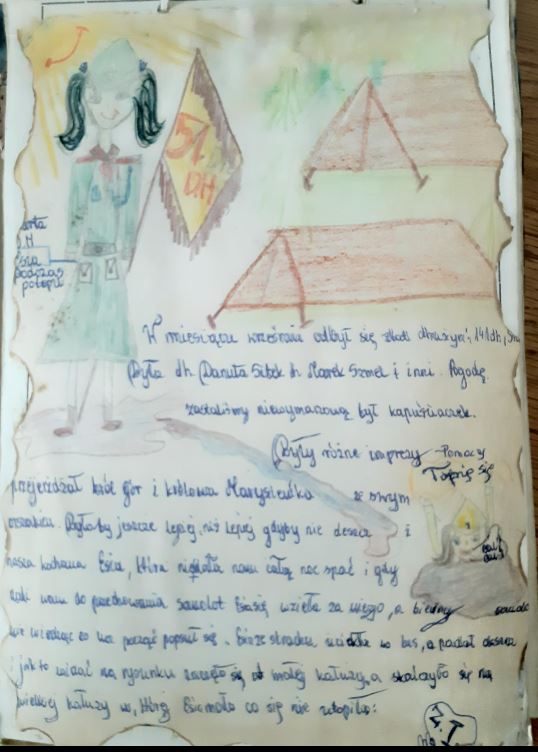 51
DH
podczas
potopu
W miesiącu wrześniu odbył się zlot drużyn, 141dh,
Była dh. Danuta Sitek h. Marek Szmel i inni. Pogodę
zastaliśmy niewymarzoną był kapuśniaczek.
Były różne imprezy
Pomocy
Topię się
przyjeżdżał król gór i królowa Marysieńka ze swym
orszakiem. Byłoby jeszcze lepiej, niż lepiej gdyby nie deszcz i
nasza kochana Esia, która nie dała nam całą noc spać i gdy
dali nam do przechowania samolot Esia się wzięła za niego, a biedny
nie wiedząc co ma począć popsuł się. Esia ze strachu uciekła w las, a padał deszcz
i jak to widać na rysunku zaczęło się od małej kałuży, a skończyło się na
wielkiej kałuży w, której Esia mało co się nie utopiła: